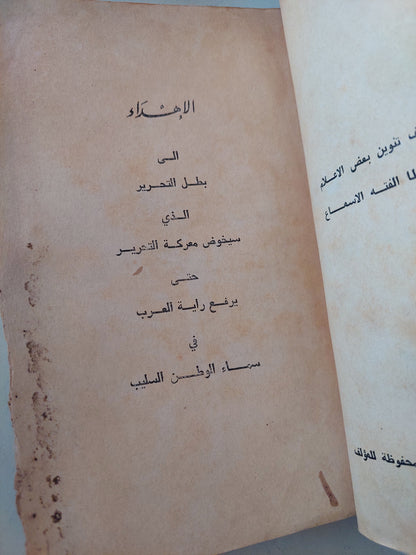 الإهداء
الـى
بطـل التحرير
الـذي
سيخوض معركة التحرير
حتـى
يرفع راية العـرب
في
سمـاء الوطـن السليب
تنوين بعض الاعلام
الفته الاسماع
محفوظة للمؤلف